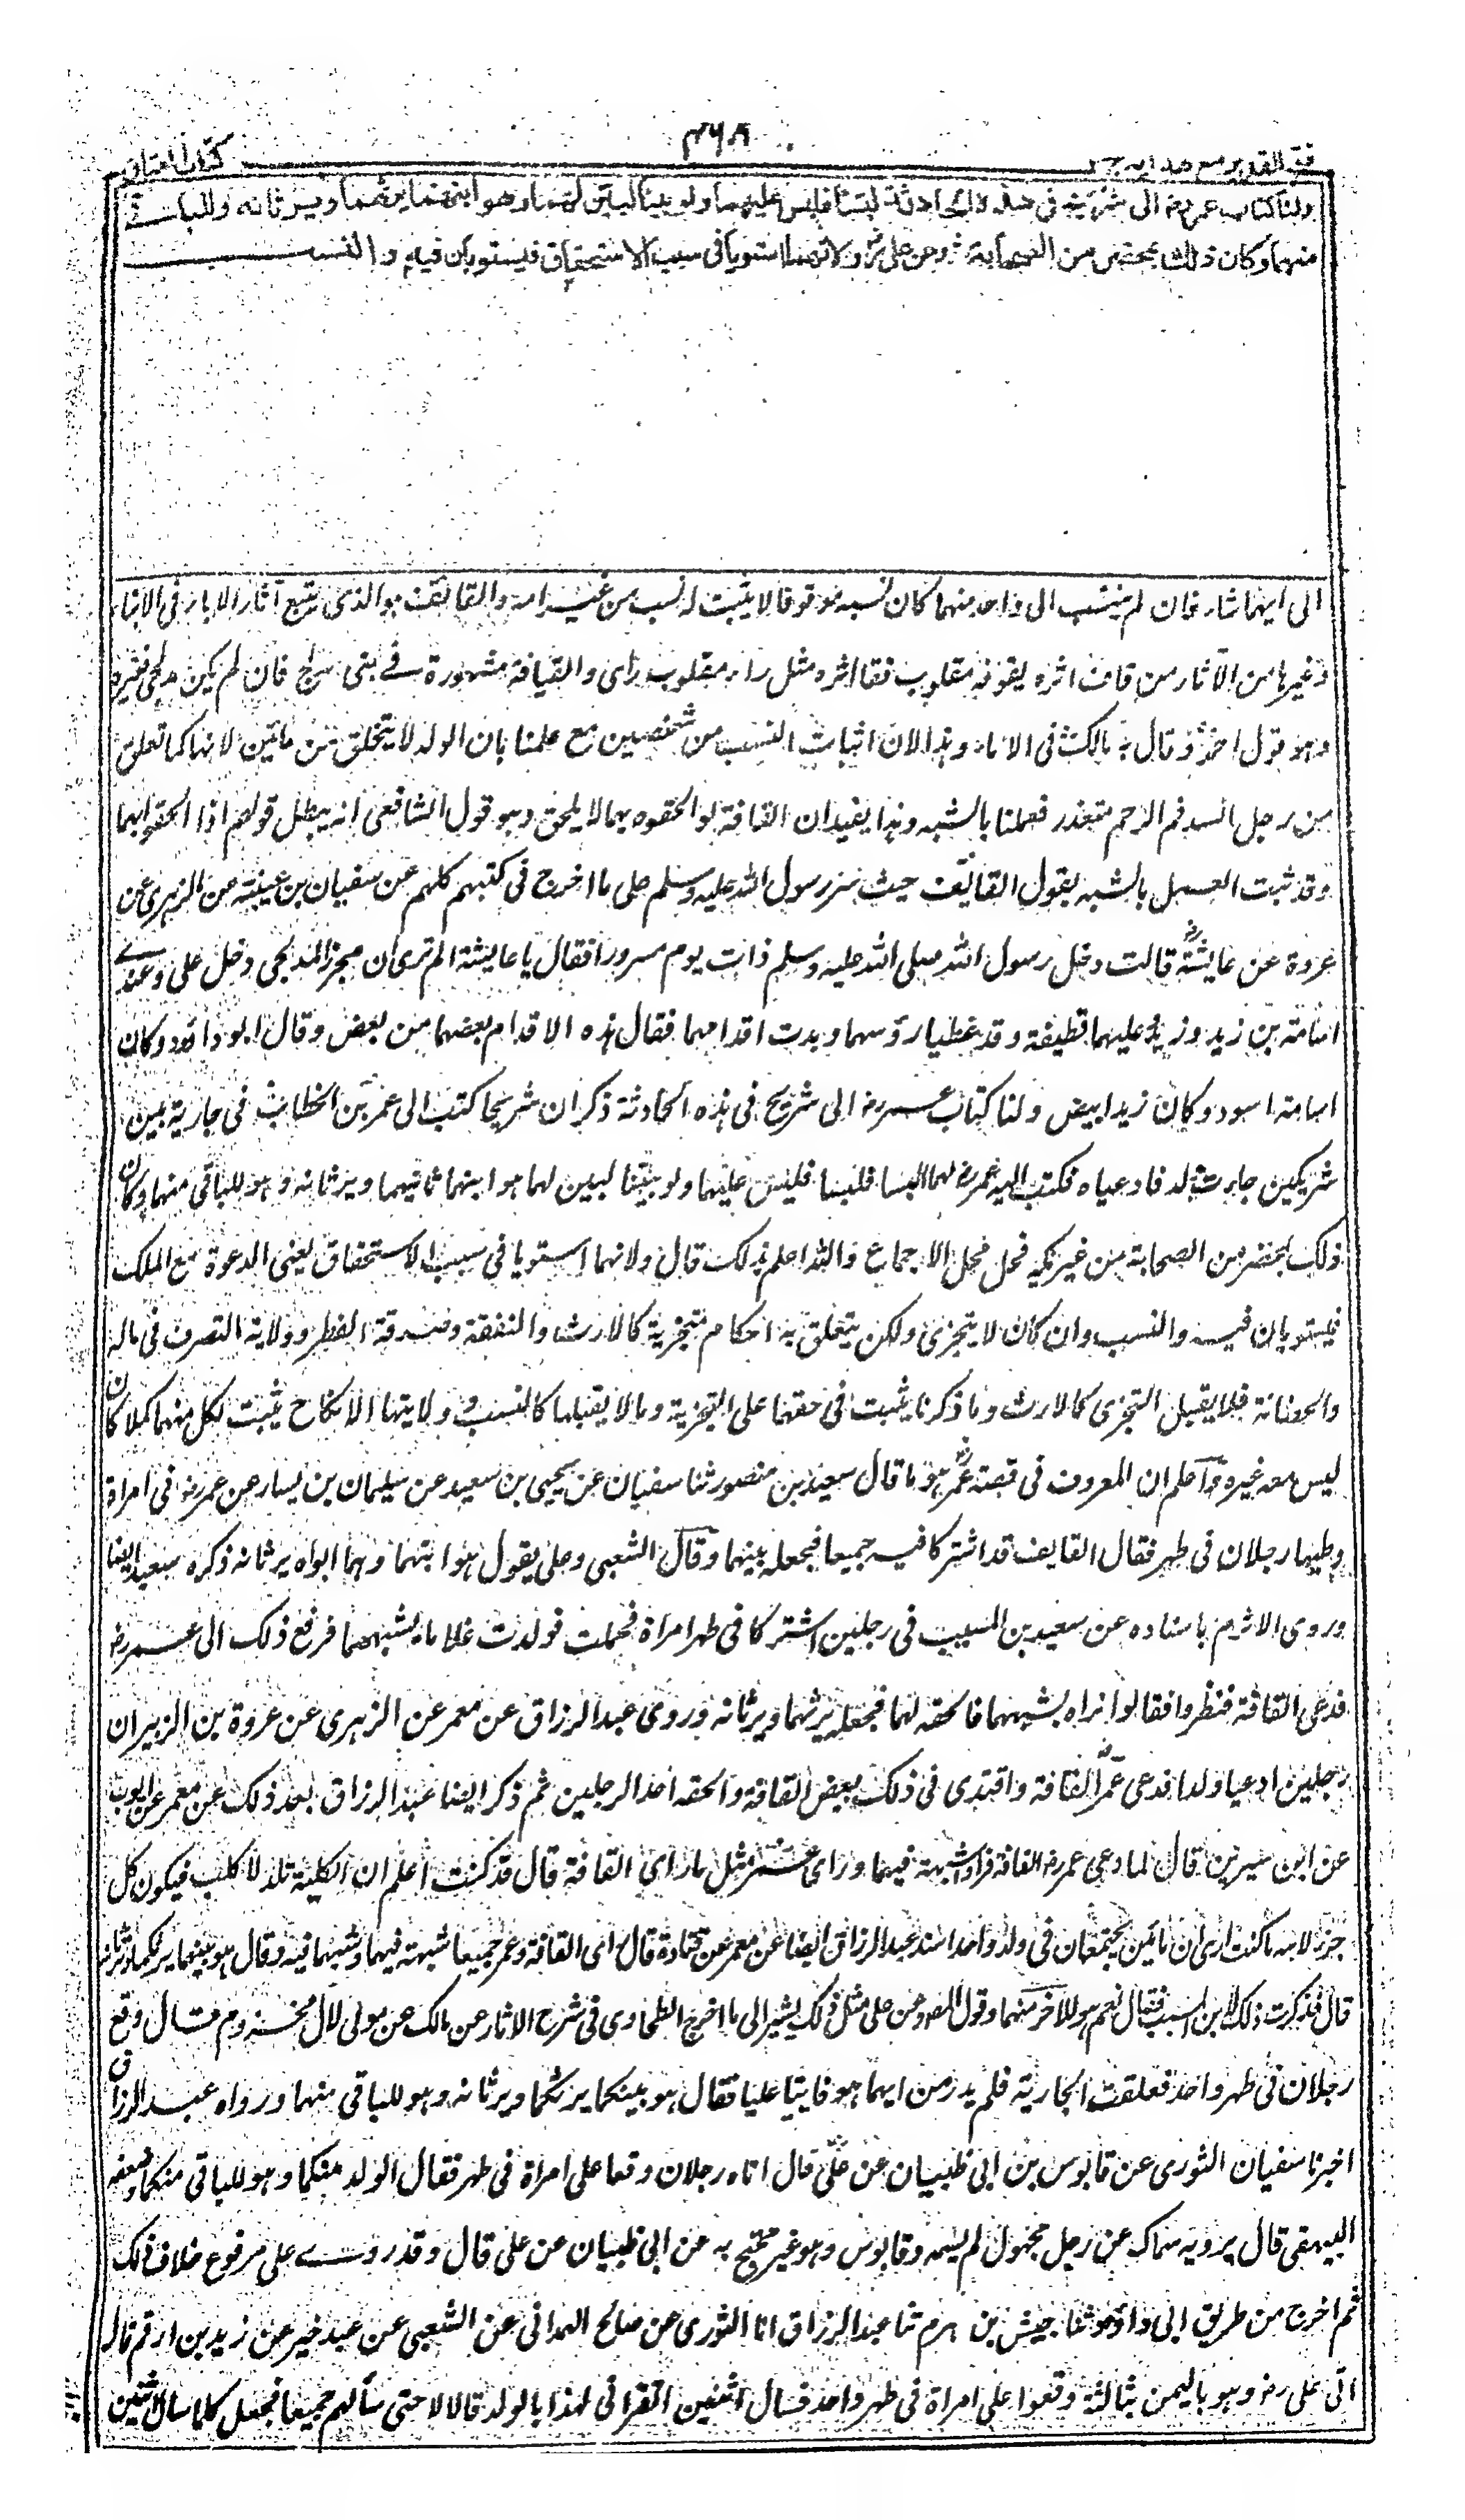 ٣٦٨
فتح القدير مع هدايه ج ٢
كتاب العتاق
ولنا كتاب عمر رض الى شريح في هذه الحادثة لبسا فلبس عليهما ولو بينا لبين لهما وهو ابنهما يرثهما ويرثانه وللباقي
منهما وكان ذلك بمحضر من الصحابة رض وعن علي رض ولانهما استويا في سبب الاستحقاق فيستويان فيه والنسب
الى ايهما شاء فان لم ينتسب الى واحد منهما كان نسبه موقوفا لا يثبت له نسب من غير امه والقائف هو الذى يتبع آثار الآباء فى الابناء
وغيرها من الآثار من قاف اثره يقوفه مقلوب قفا اثره مثل راء مقلوب راى والقيافة مشهورة فے بنى مدلج فان لم يكن مدلجى فغيره
وهو قول احمد وقال به مالك فى الاماء وهذا لان اثبات النسب من شخصين مع علمنا بان الولد لا يتخلق من مائين لانها كما تعلق
من رجل انسد فم الرحم متعذر فعملنا بالشبه وهذا يفيد ان القافة لو الحقوه بهما لا يلحق وهو قول الشافعى انه يبطل قولهم اذا الحقوه بهما
وقد ثبت العمل بالشبه بقول القائف حيث سر رسول الله عليه وسلم على ما اخرج فى كتبهم كلهم عن سفيان بن عيينة عن الزهرى عن
عروة عن عايشة رض قالت دخل رسول الله صلى الله عليه وسلم ذات يوم مسرورا فقال يا عايشة الم ترى ان مجزز المدلجى دخل على وعندے
اسامة بن زيد وزيد عليهما قطيفة وقد غطيا رؤسهما وبدت اقدامهما فقال هذه الاقدام بعضها من بعض وقال ابو داؤد وكان
اسامة اسود وكان زيد ابيض ولنا كتاب عمر رض الى شريح فى هذه الحادثة ذكر ان شريحا كتب الى عمر بن الخطاب رض فى جارية بين
شريكين جاءت بولد فادعياه فكتب اليه عمر رض انهما لبسا فلبس عليهما ولو بينا لبين لهما هو ابنهما يرثهما ويرثانه وهو للباقى منهما وكان
ذلك بمحضر من الصحابة من غير نكير فحل محل الاجماع والله اعلم بذلك قال ولانهما استويا فى سبب الاستحقاق يعنى الدعوة مع الملك
فيستويان فيه والنسب وان كان لا يتجزى ولكن يتعلق به احكام متجزية كالارث والنفقة وصدقة الفطر وولاية التصرف فى ماله
والحضانة فلا يقبل التجزى كالارث وما ذكرنا يثبت فى حقهما على التجزية وما لا يقبلها كالنسب وولايتها الانكاح يثبت لكل منهما كملا كان
ليس معه غيره واعلم ان المعروف فى قصة عمر رض هو ما قال سعيد بن منصور ثنا سفيان عن يحيى بن سعيد عن سليمان بن يسار عن عمر رض فى امراة
وطيها رجلان فى طهر فقال القايف قد اشتركا فيه جميعا فجعله بينهما وقال الشعبى وعلى يقول هو ابنهما وهما ابواه يرثانه ذكره سعيد ايضا
وروى الاثرم باسناده عن سعيد بن المسيب فى رجلين اشتركا فى طهر امراة فحملت فولدت غلاما يشبههما فرفع ذلك الى عمر رض
فدعى القافة فنظروا فقالوا نراه يشبههما فالحقه لهما فجعله يرثهما ويرثانه وروى عبد الرزاق عن معمر عن الزهرى عن عروة بن الزبير ان
رجلين ادعيا ولدا فدعى عمر رض القافة واقتدى فى ذلك ببعض القافة والحقه احد الرجلين ثم ذكر ايضا عبد الرزاق بعد ذلك عن معمر عن ايوب
عن ابن سيرين قال لما دعى عمر رض القافة فراوا شبهه فيهما وراى عمر مثل ما راى القافة قال قد كنت اعلم ان الكلبة تلد لاكلب فيكون كل
جرو لابيه ما كنت ارى ان مائين يجتمعان فى ولد واحد اسند عبد الرزاق ايضا عن معمر عن قتادة قال راى القافة وعمر جميعا شبهه فيهما وشبههما فيه وقال هو بينكما يرثكما وترثانه
قال فذكرت ذلك لابن المسيب فقال نعم هو للآخر منهما وقول المصنف وعن على مثل ذلك يشير الى ما اخرج الطحاوى فى شرح الاثار عن سماك عن مولى لآل مخزوم قال وقع
رجلان فى طهر واحد فعلقت الجارية فلم يدر من ايهما هو فاتيا عليا فقال هو بينكما يرثكما ويرثانه وهو للباقى منهما ورواه عبد الرزاق
اخبرنا سفيان الثورى عن قابوس بن ابى ظبيان عن على رض قال اتاه رجلان وقعا على امراة فى طهر فقال الولد منكما وهو للباقى منكما وضعفه
البيهقى قال يرويه سماك عن رجل مجهول لم يسمه وقابوس وهو غير محتج به عن ابى ظبيان عن على قال وقد روے على مرفوع خلاف ذلك
ثم اخرج من طريق ابى داؤد ثنا حبيش بن هرم ثنا عبد الرزاق انا الثورى عن صالح الهمدانى عن الشعبى عن عبد خير عن زيد بن ارقم قال
اتى على رض وهو باليمن بثلاثة وقعوا على امراة فى طهر واحد فسال اثنين اتقران لهذا بالولد قالا لا حتى سألهم جميعا فجعل كلما سال اثنين